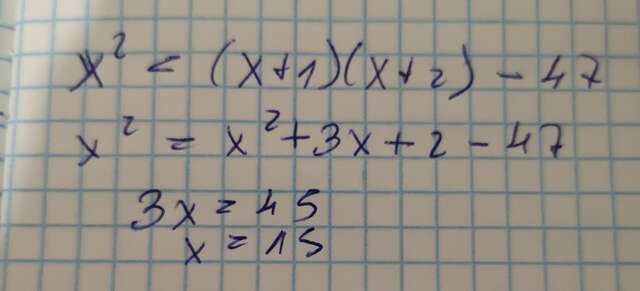 x² = (x+1)(x+2) - 47
x² = x²+3x+2-47
3x = 45
x = 15